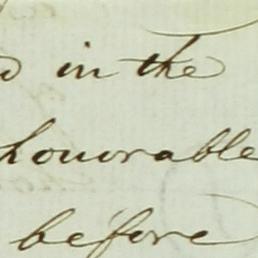 in the
honorable
before